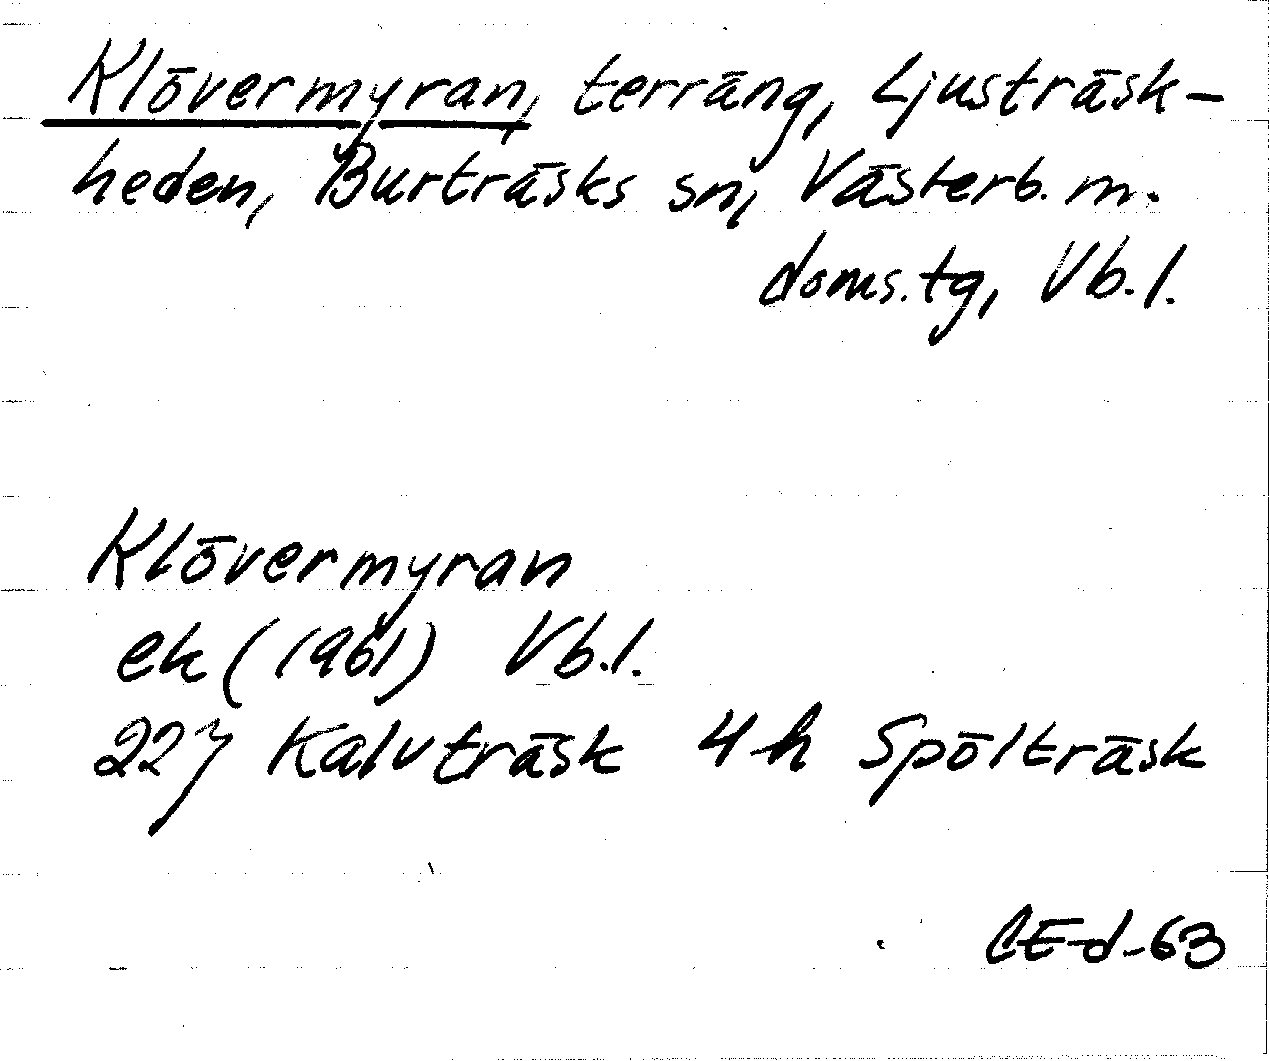 Klövermyran, terräng, Ljusträsk-
heden, Burträsks sn, Västerb. m.
doms.tg, Vb.l.
Klövermyran
ek (1961) Vb.l.
22J Kalvträsk 4h Spölträsk
CEd-63